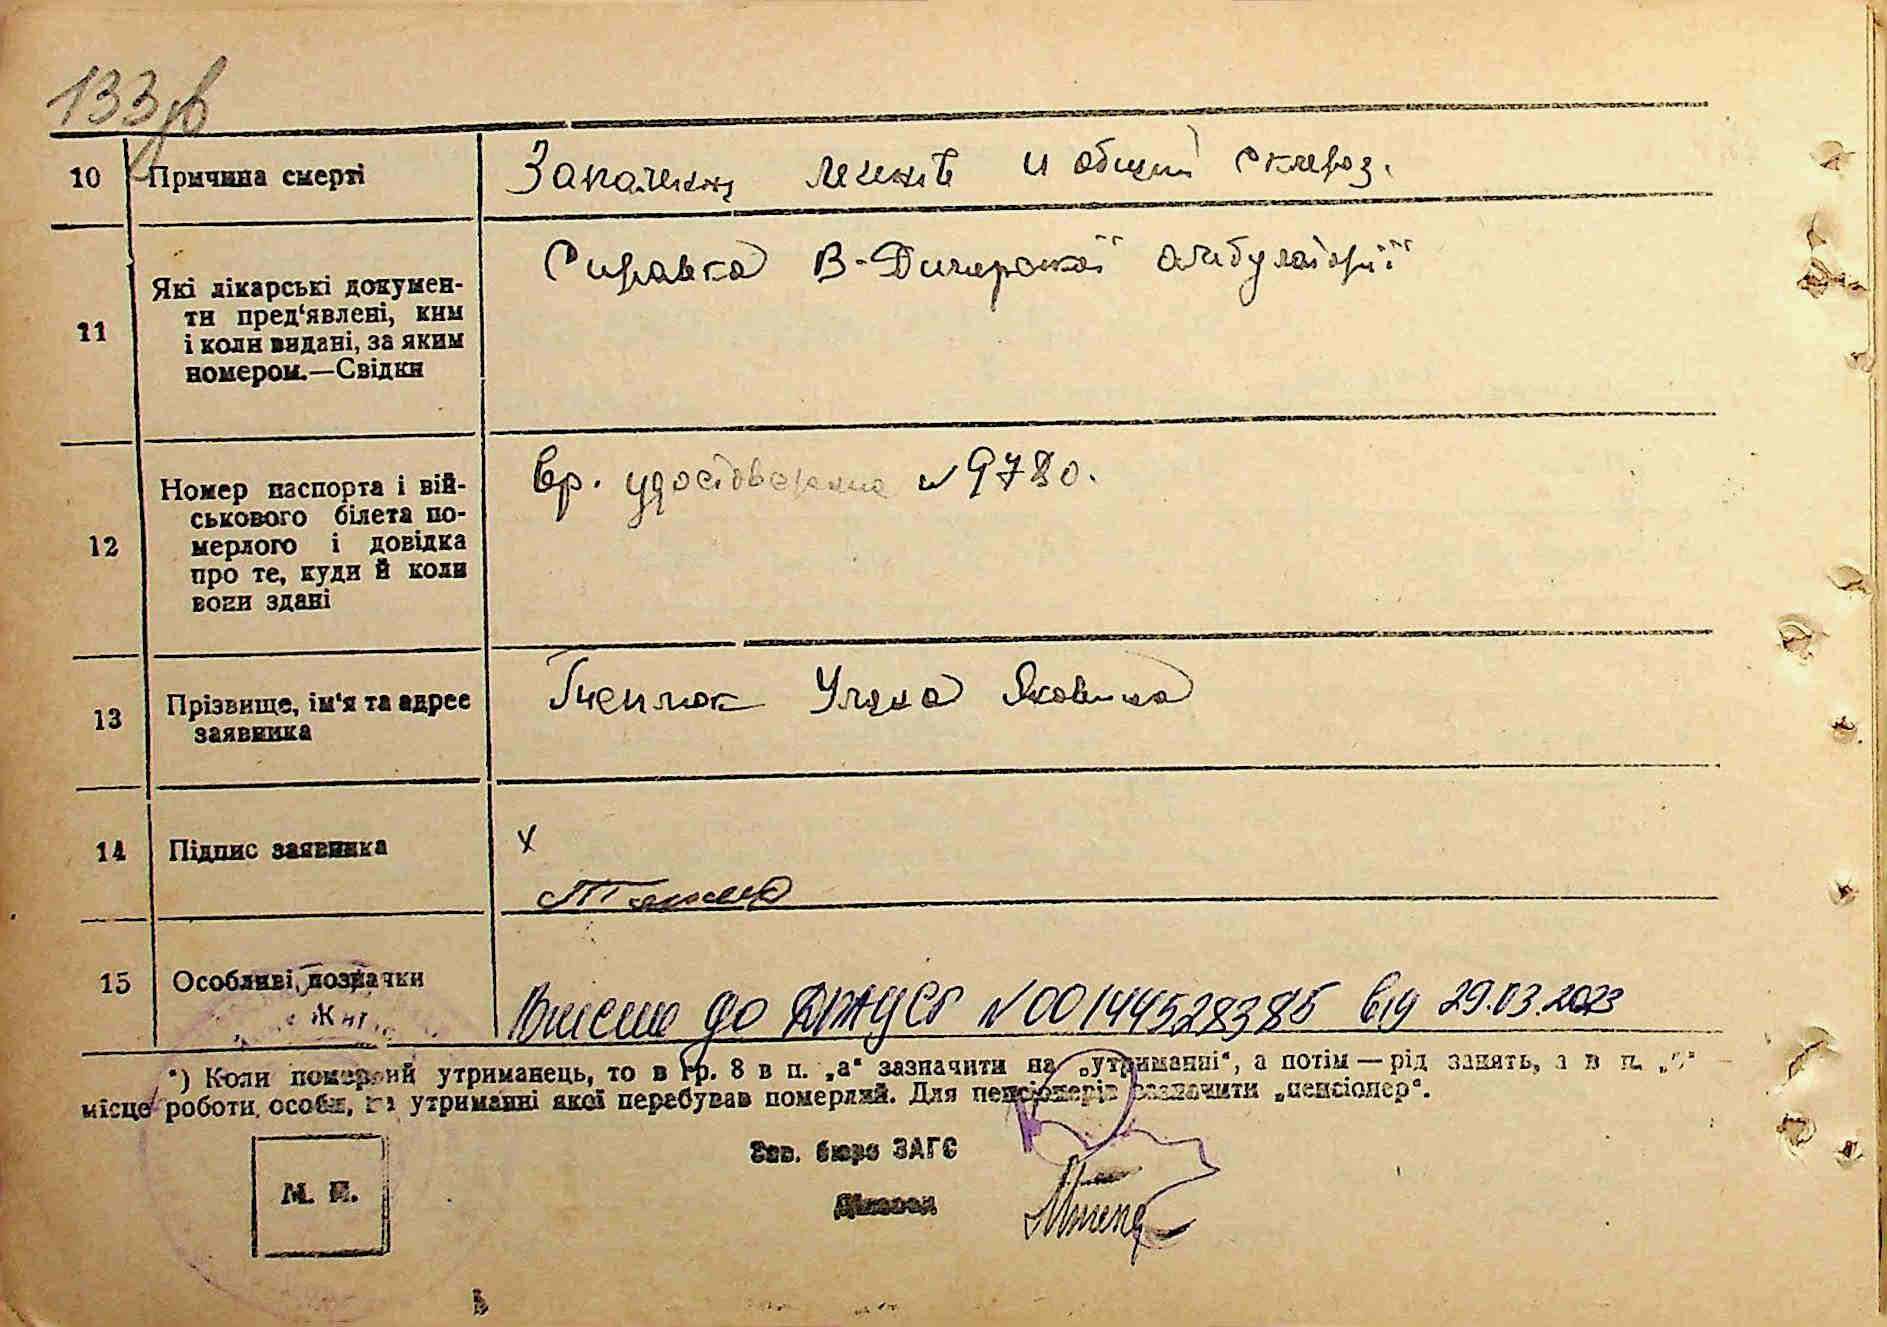 133зв
10 Причина смерті Запалення легенів и общий склероз.
11 Які лікарські докумен-
ти пред‘явлені, ким
і коли видані, за яким
номером.—Свідки
Справка В-Дичерської амбулаторії
12 Номер паспорта і вій-
ськового білета по-
мерлого і довідка
про те, куди й коли
вони здані
Вр. удостоверение №9780.
13 Прізвище, ім‘я та адрес
заявника
Уляна Яковина
14 Підпис заявника
х
15 Особливі позначки
Внесено до ДРАЦСГ №00144528385 від 29.03.2023
*) Коли померлий утриманець, то в гр. 8 в п. „а“ зазначити на „утриманні“, а потім — рід занять, а в п.
місце роботи особи, на утриманні якої перебував померлий. Для пенсіонерів зазначити „пенсіонер“.
Зав. бюро ЗАГС
М. П.
Діловод